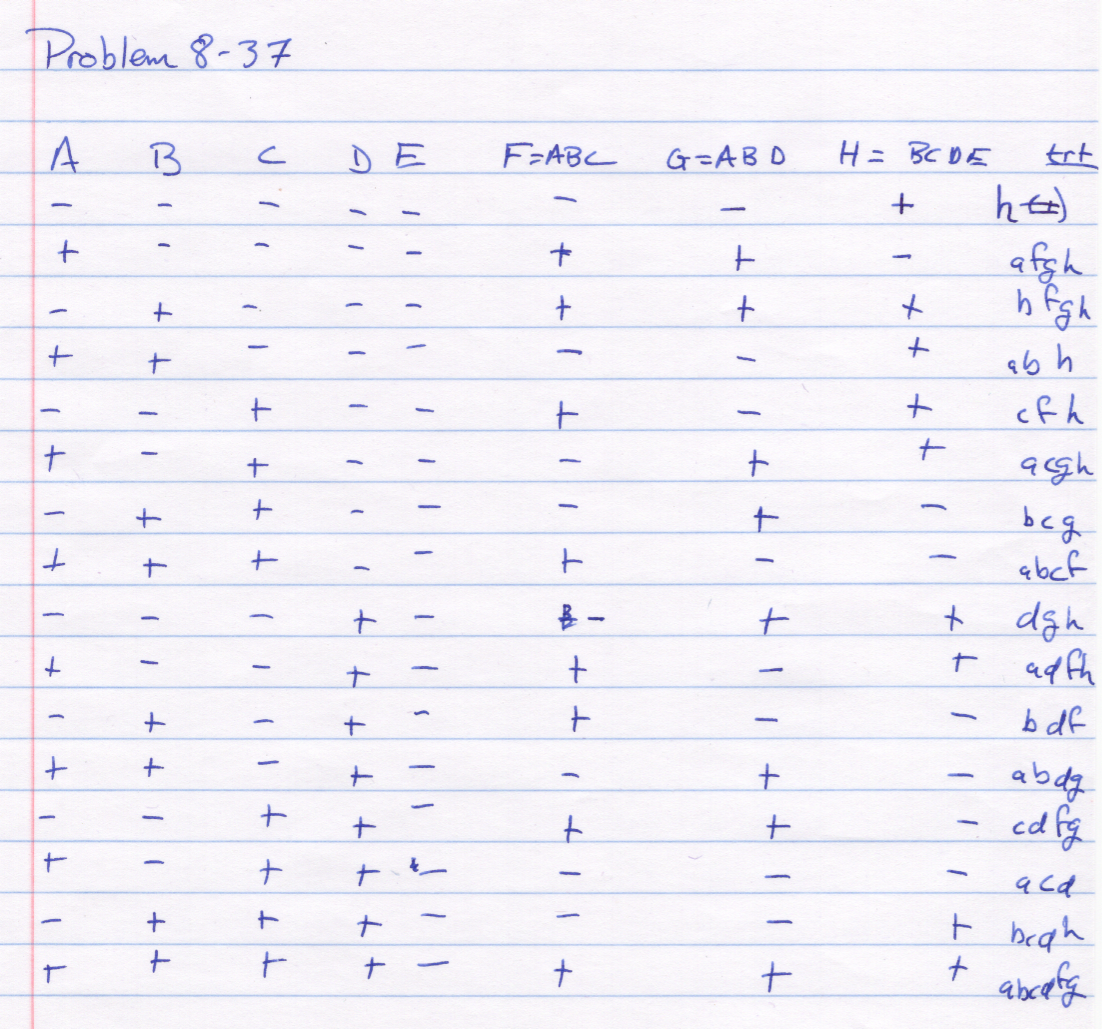 Problem 8-37
A B C D E F=ABC G=ABD H=BCDE trt
- - - - - - - + h
+ - - - - + + - afgh
- + - - - + + + bfgh
+ + - - - - - + abh
- - + - - + - + cfh
+ - + - - - + + acgh
- + + - - - + - bcg
+ + + - - + - - abcf
- - - + - - + + dgh
+ - - + - + - + adfh
- + - + - + - - bdf
+ + - + - - + - abdg
- - + + - + + - cdfg
+ - + + - - - - acd
- + + + - - - + bcdh
+ + + + - + + + abcdfg